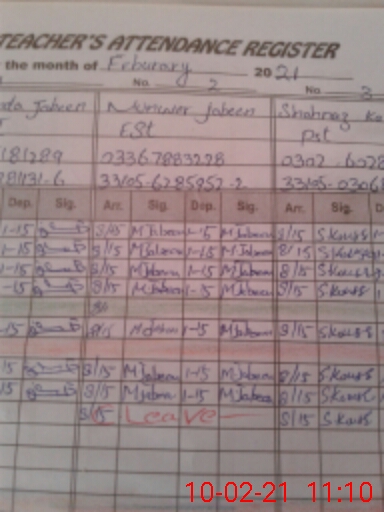 TEACHER'S ATTENDANCE REGISTER
the month of Erbuary 2021
No. 2 No. 3
Jabeen Munwer Jabeen Shahnaz
ESt Pst
181289 03367883228 0302-6028
33105-6285952-2 33105-0306
Dep. Sig. Arr. Sig. Dep. Sig. Arr. Sig.
1-15 8/15 MJabeen 1-15 MJabeen 8/15 SKousr
1-15 8/15 MJabeen 1-15 MJabeen 8/15 SKousr
1-15 8/15 MJabeen 1-15 MJabeen 8/15 SKousr
-15 8/15 MJabeen 1-15 MJabeen 8/15 SKousr
-15 8/15 MJabeen 1-15 MJabeen 8/15 SKousr
15 8/15 MJabeen 1-15 MJabeen 8/15 SKousr
15 8/15 MJabeen 1-15 MJabeen 8/15 SKousr
8/15 Leave 8/15 SKousr
10-02-21 11:10